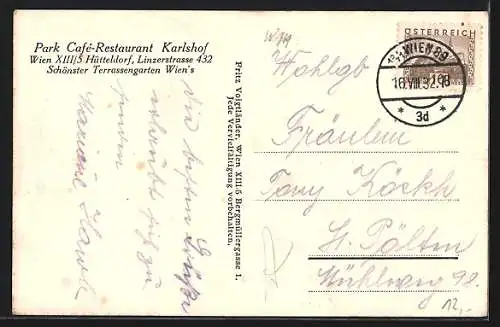 Park Café-Restaurant Karlshof
Wien XIII/5 Hütteldorf, Linzerstrasse 432
Schönster Terrassengarten Wien's
Die besten Grüße
erlaubt sich zu
senden
Mariane
Fritz Voigtländer, Wien XIII/5 Bergmüllergasse 1.
Jede Vervielfältigung vorbehalten.
ÖSTERREICH
WIEN 89
18.VIII.32.18
* 3d *
Wohlgb
Fräulein
Tony Köckh
St. Pölten
Mühlweg 92.
12,-